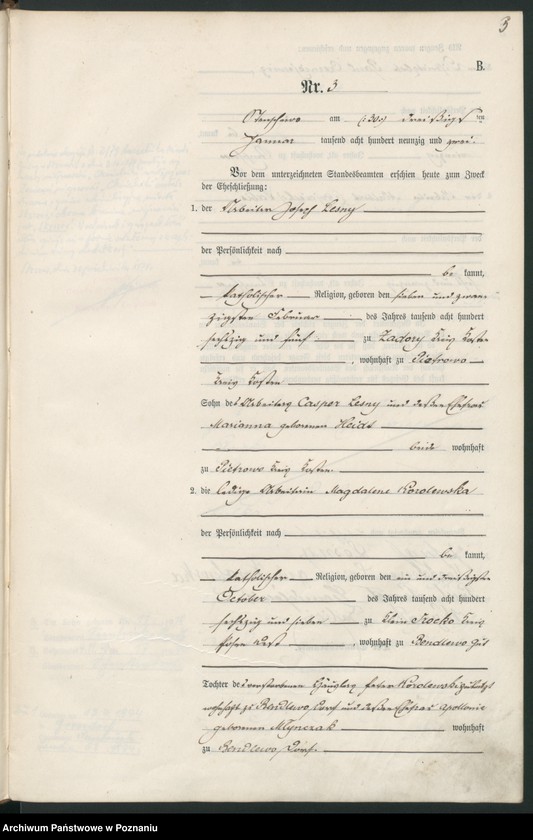 3
B.
Nr. 3
am (30) dreißigsten
Januar tausend acht hundert neunzig und zwei.
Vor dem unterzeichneten Standesbeamten erschien heute zum Zweck
der Eheschließung:
1. der Arbeiter Joseph Lesny
der Persönlichkeit nach
be kannt,
katholischer Religion, geboren den sieben und zwan-
zigsten Februar des Jahres tausend acht hundert
sechszig und fünf zu Zadory Kreis Kosten
, wohnhaft zu Piotrowo
Kreis Kosten
Sohn des Arbeiters Casper Lesny und dessen Ehefrau
Marianna geborenen Heidt
beide wohnhaft
zu Piotrowo Kreis Kosten.
2. die ledige Arbeiterin Magdalene Korolewska
der Persönlichkeit nach
be kannt,
katholischer Religion, geboren den ein und dreißigsten
October des Jahres tausend acht hundert
sechszig und sieben zu Klein Kreis
Posen West, wohnhaft zu Bendlewo Gut
Tochter des verstorbenen Häuslers Peter Korolewski zuletzt
wohnhaft zu Bendlewo, Dorf und dessen Ehefrau Apollonie
geborenen Mlynczak wohnhaft
zu Bendlewo, Dorf.
Archiwum Państwowe w Poznaniu